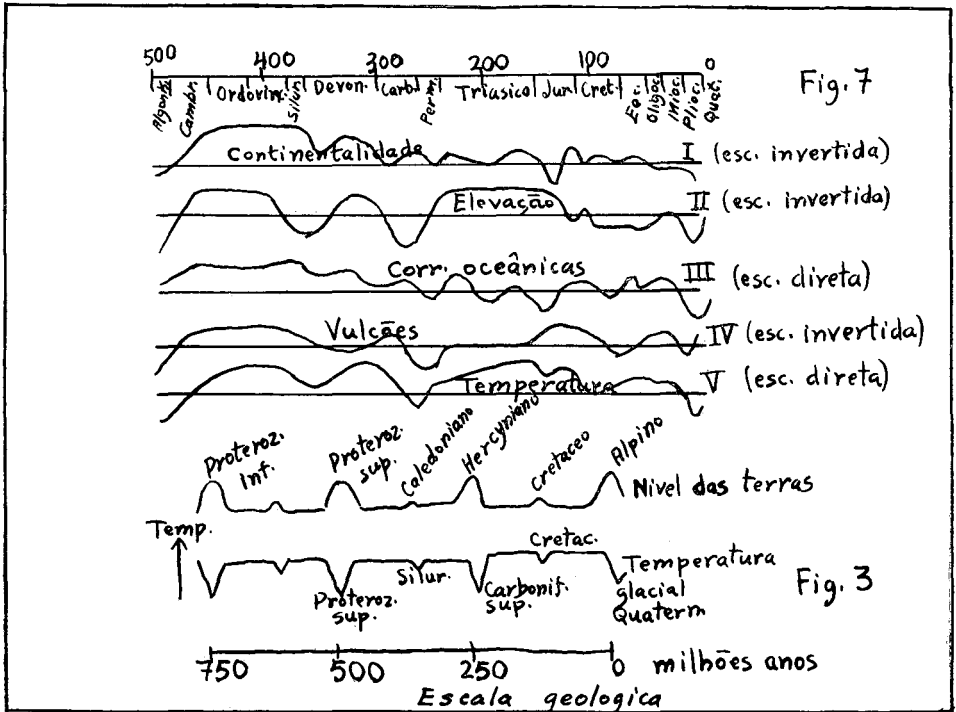 500 400 300 200 100 0
Algonq. Cambr. Ordovin. Silur. Devon. Carb. Perm. Triasico Jur. Cret. Eoc. Oligoc. Mioc. Plioc. Quat.
Fig. 7
Continentalidade I (esc. invertida)
Elevação II (esc. invertida)
Corr. oceânicas III (esc. direta)
Vulcões IV (esc. invertida)
Temperatura V (esc. direta)
Proteroz. Inf.
Proteroz. sup.
Caledoniano
Hercyniano
Cretaceo
Alpino
Nivel das terras
Temp.
Cretac.
Silur.
Proteroz. sup.
Carbonif. sup.
Temperatura
glacial
Quatern
Fig. 3
750 500 250 0 milhões anos
Escala geologica